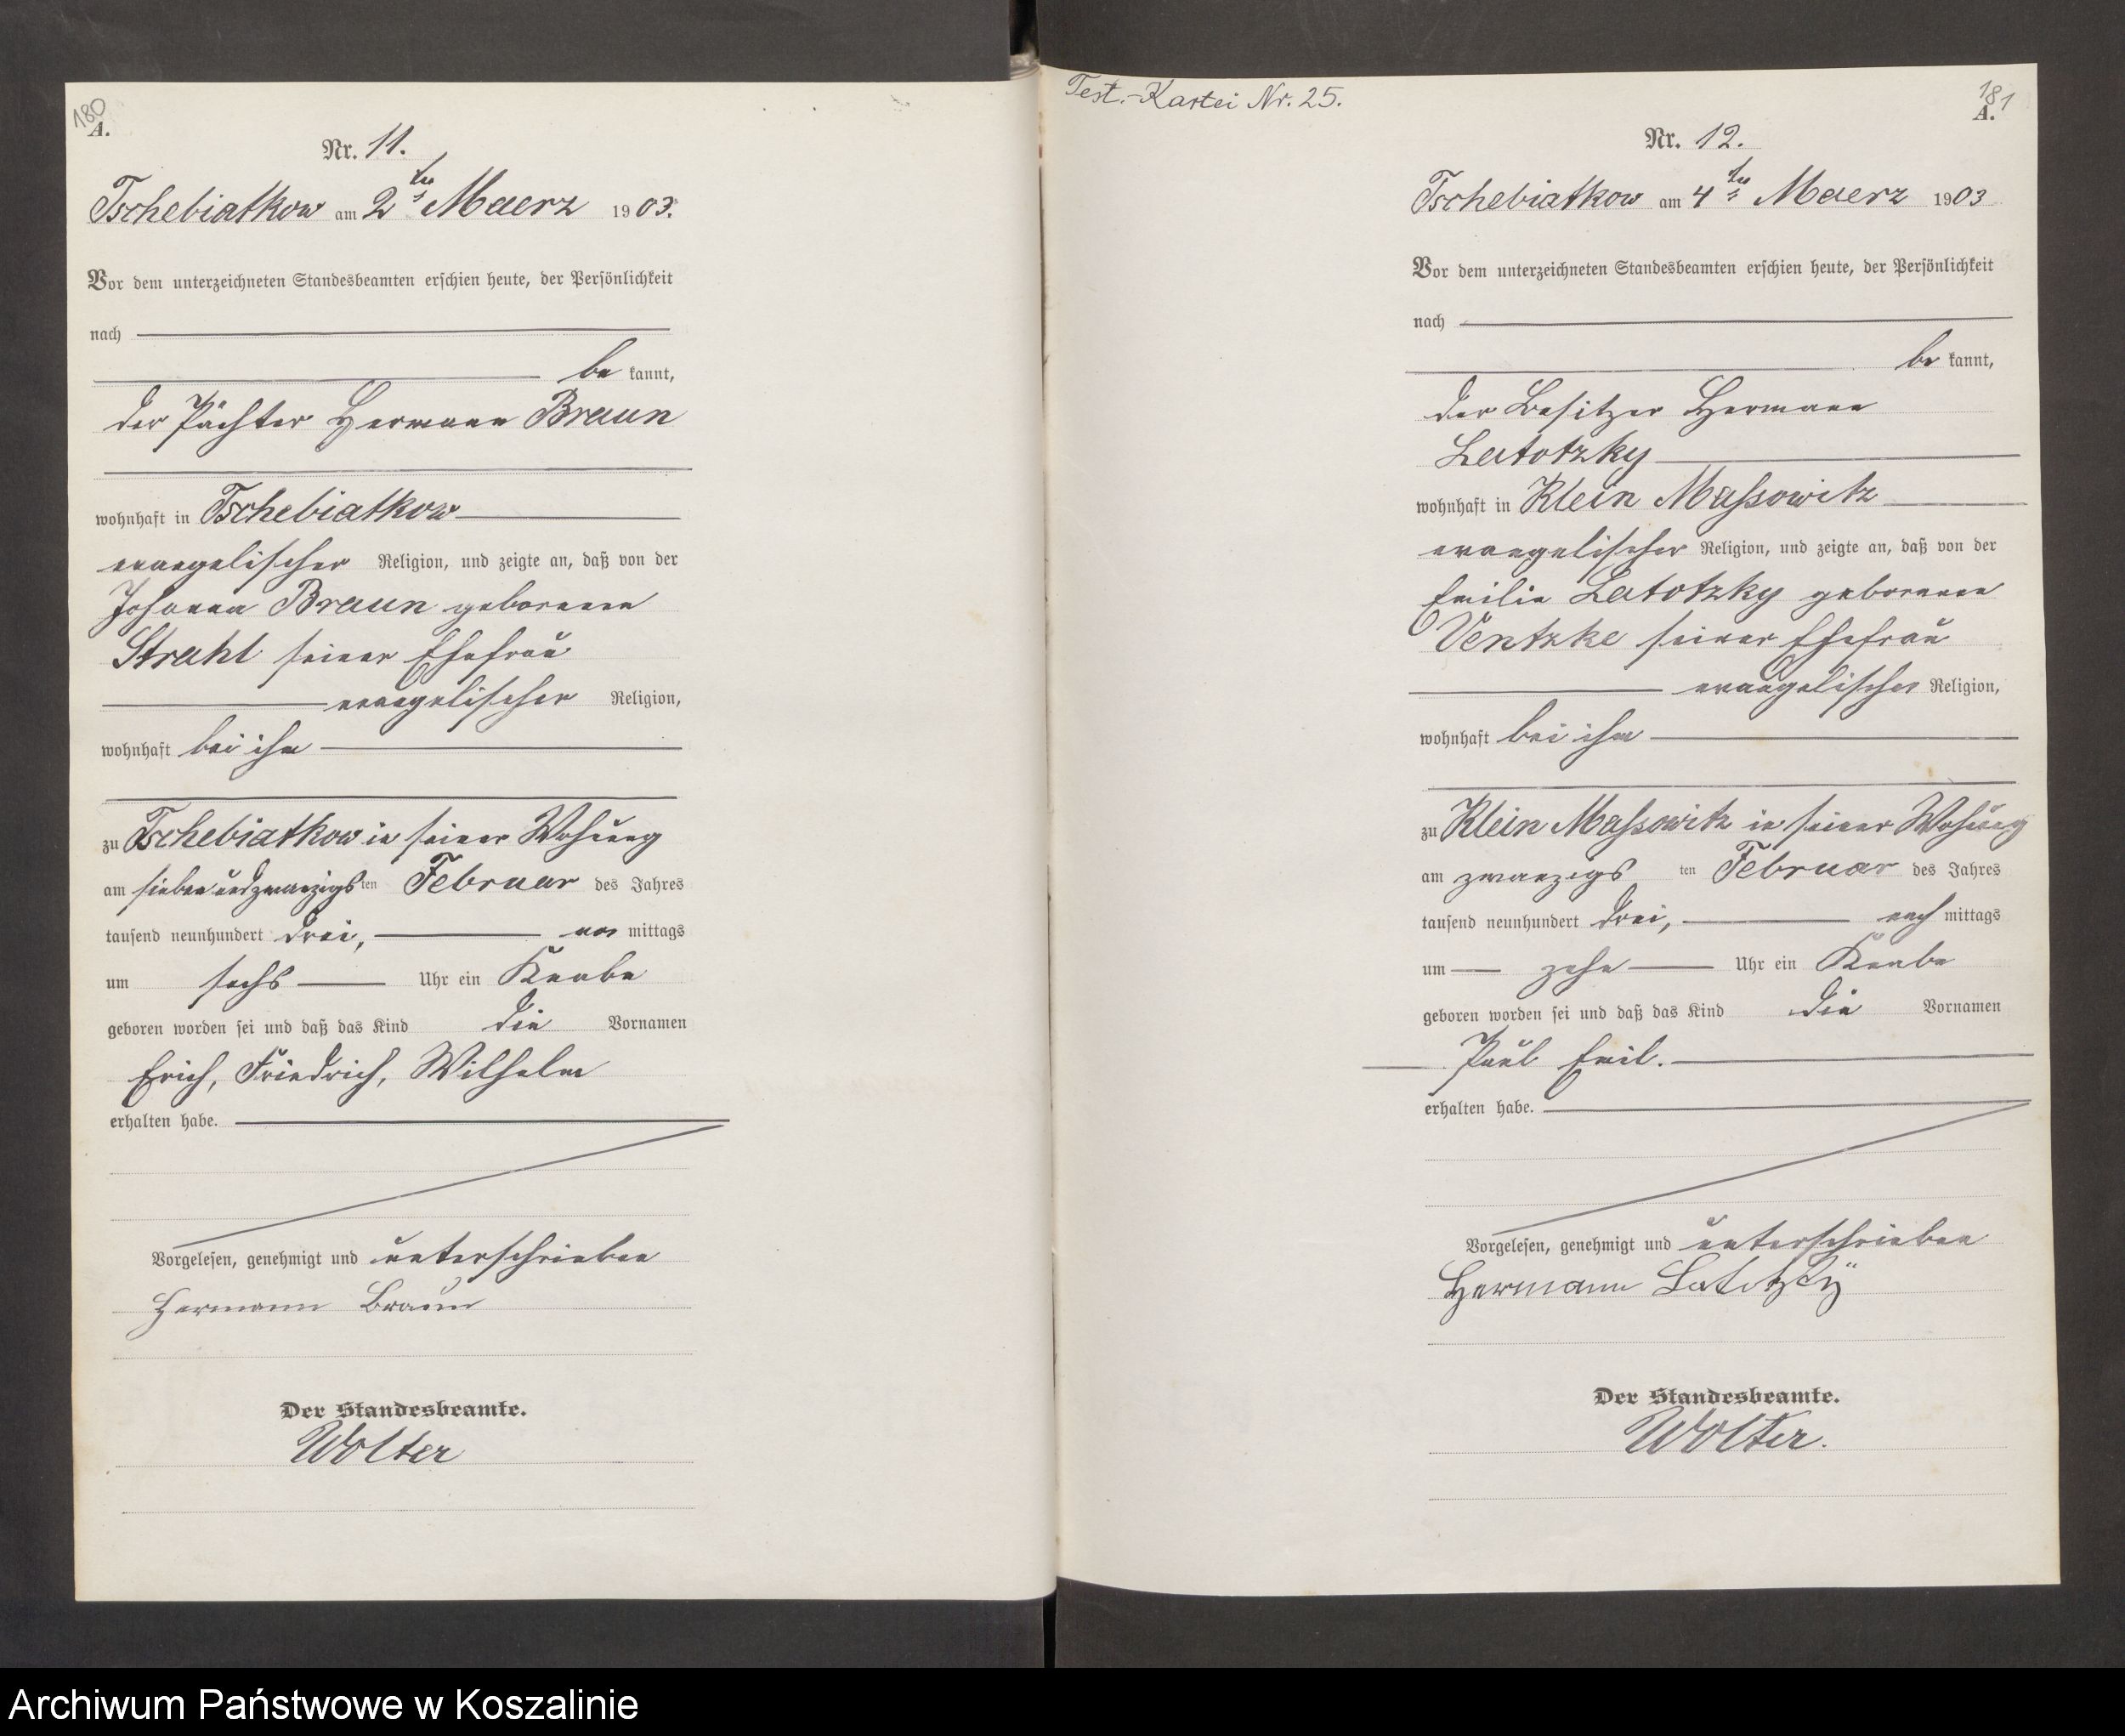 180
A.
Nr. 11.
Tschebiatkow am 2ten Maerz 1903.
Vor dem unterzeichneten Standesbeamten erschien heute, der Persönlichkeit
nach
be kannt,
der Pächter Hermann Braun
wohnhaft in Tschebiatkow
evangelischer Religion, und zeigte an, daß von der
Johanna Braun geborenen
Strahl seiner Ehefrau
evangelischer Religion,
wohnhaft bei ihm
zu Tschebiatkow in seiner Wohnung
am siebenundzwanzigsten Februar des Jahres
tausend neunhundert drei, vor mittags
um sechs Uhr ein Knabe
geboren worden sei und daß das Kind die Vornamen
Erich, Friedrich, Wilhelm
erhalten habe.
Vorgelesen, genehmigt und unterschrieben
Hermann Braun
Der Standesbeamte.
Wolter
Test.-Kartei Nr. 25.
181
A.
Nr. 12.
Tschebiatkow am 4ten Maerz 1903
Vor dem unterzeichneten Standesbeamten erschien heute, der Persönlichkeit
nach
be kannt,
der Besitzer Hermann
Latotzky
wohnhaft in Klein Massowitz
evangelischer Religion, und zeigte an, daß von der
Emilie Latotzky geborenen
Ventzke seiner Ehefrau
evangelischer Religion,
wohnhaft bei ihm
zu Klein Massowitz in seiner Wohnung
am zwanzigsten Februar des Jahres
tausend neunhundert drei, nach mittags
um zehn Uhr ein Knabe
geboren worden sei und daß das Kind die Vornamen
Paul Emil.
erhalten habe.
Vorgelesen, genehmigt und unterschrieben
Hermann Latotzky
Der Standesbeamte.
Wolter.
Archiwum Państwowe w Koszalinie